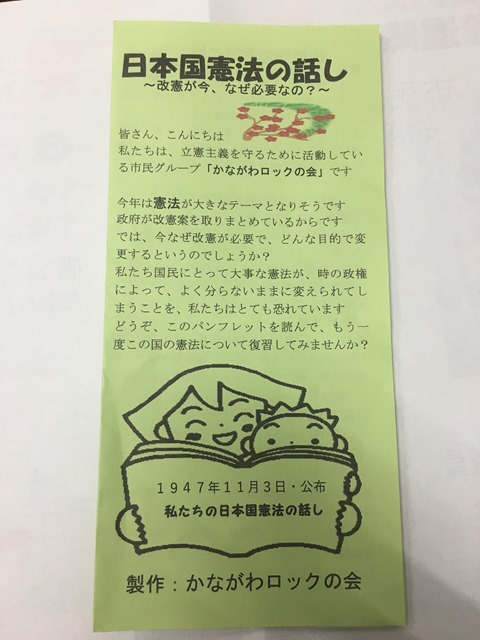 日本国憲法の話し
～改憲が今、なぜ必要なの？～
皆さん、こんにちは
私たちは、立憲主義を守るために活動してい
る市民グループ「かながわロックの会」です
今年は憲法が大きなテーマとなりそうです
政府が改憲案を取りまとめているからです
では、今なぜ改憲が必要で、どんな目的で変
更するというのでしょうか？
私たち国民にとって大事な憲法が、時の政権
によって、よく分らないままに変えられてし
まうことを、私たちはとても恐れています
どうぞ、このパンフレットを読んで、もう一
度この国の憲法について復習してみませんか？
１９４７年１１月３日・公布
私たちの日本国憲法の話し
製作：かながわロックの会